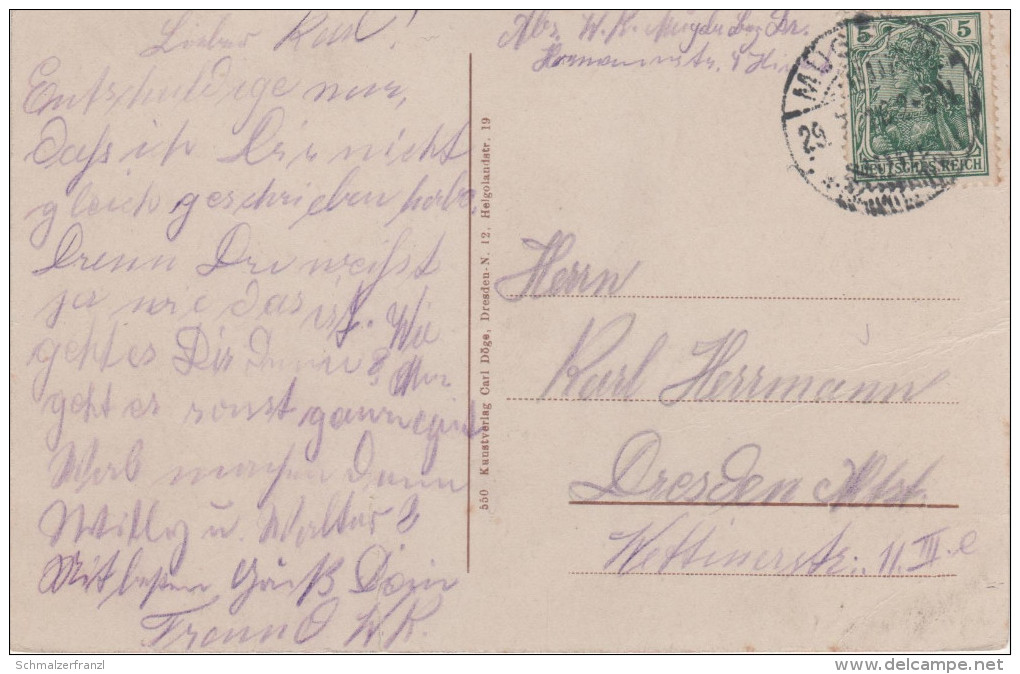 Lieber Karl!
Entschuldige nur,
dass ich Dir nicht
gleich geschrieben habe.
Denn Du weißt
ja wie das ist. Wie
geht es Dir denn? Mir
geht es sonst ganz gut
Was machen denn
Willy u. Walter?
Mit besten Gruß Dein
Freund W. K.
Abs. W. K. Mügeln Bez. Dr.
550 Kunstverlag Carl Döge, Dresden-N. 12, Helgolandstr. 19
5 5
DEUTSCHES REICH
MÜG
29
Herrn
Karl Herrmann
Dresden Altst.
Wettinerstr. 11 III. e
Schmalzerfranzl
delcampe.net